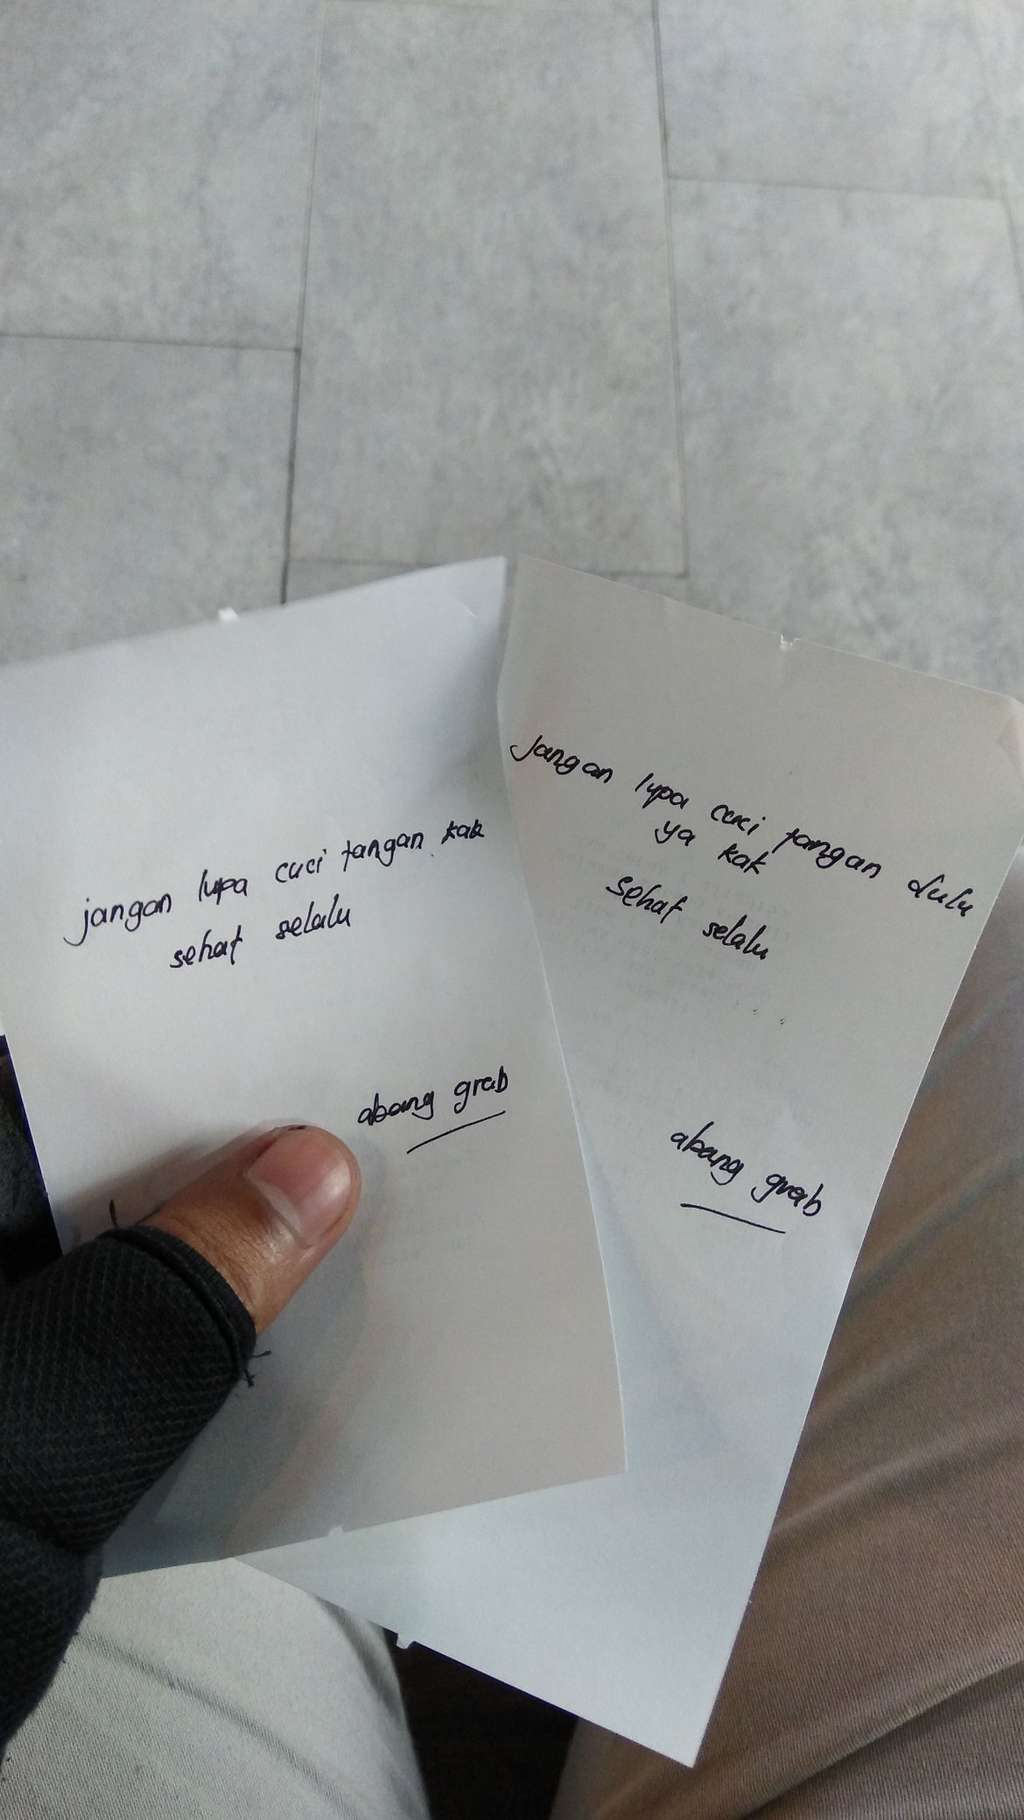 jangan lupa cuci tangan kak
sehat selalu
abang grab
Jangan lupa cuci tangan dulu
ya kak
sehat selalu
abang grab